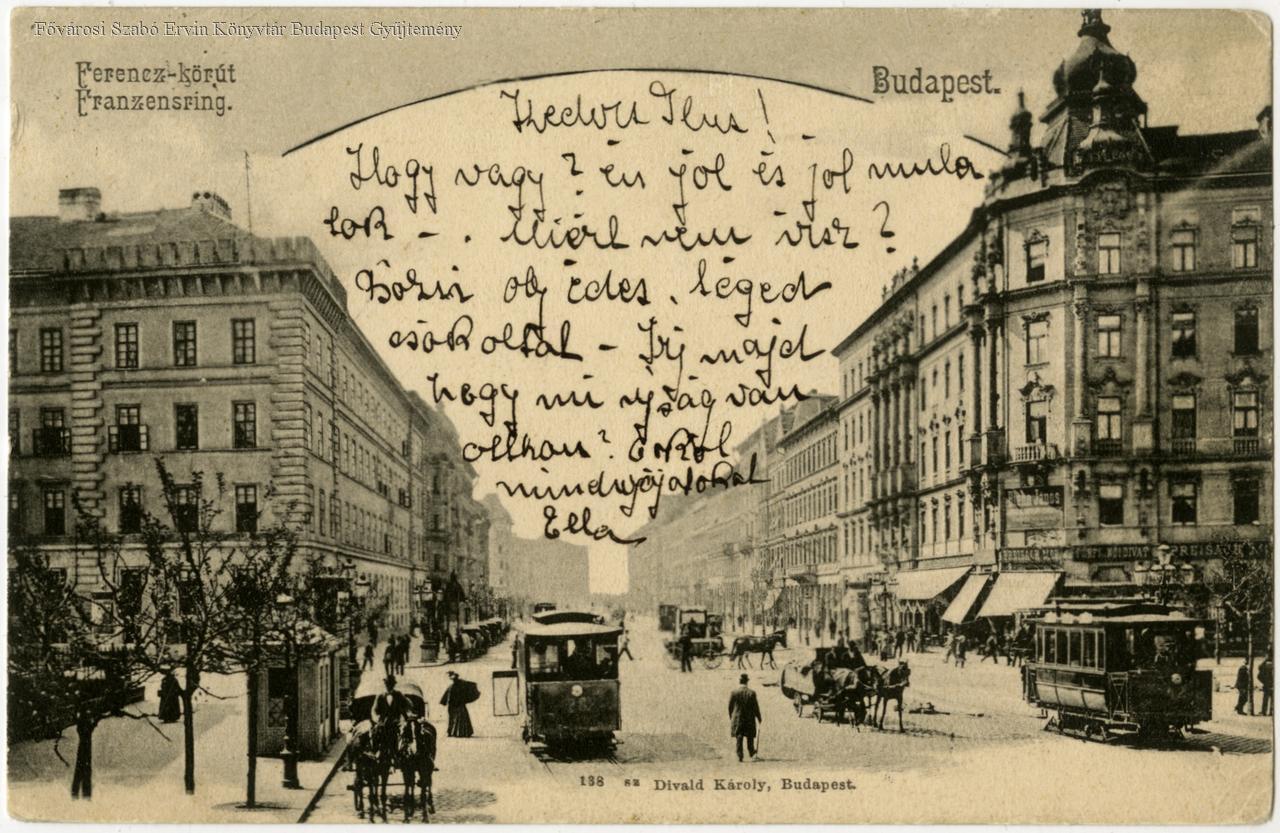 Fővárosi Szabó Ervin Könyvtár Budapest Gyűjtemény
Ferencz-körút
Franzensring.
Budapest.
Kedves Ilus!
Hogy vagy? én jól és jol mula
tok - . Miért nem irsz?
oly édes. téged
csókoltat - Irj majd
hogy mi ujság van
otthon?
mindnyájatokat
Ella
138 sz Divald Károly, Budapest.